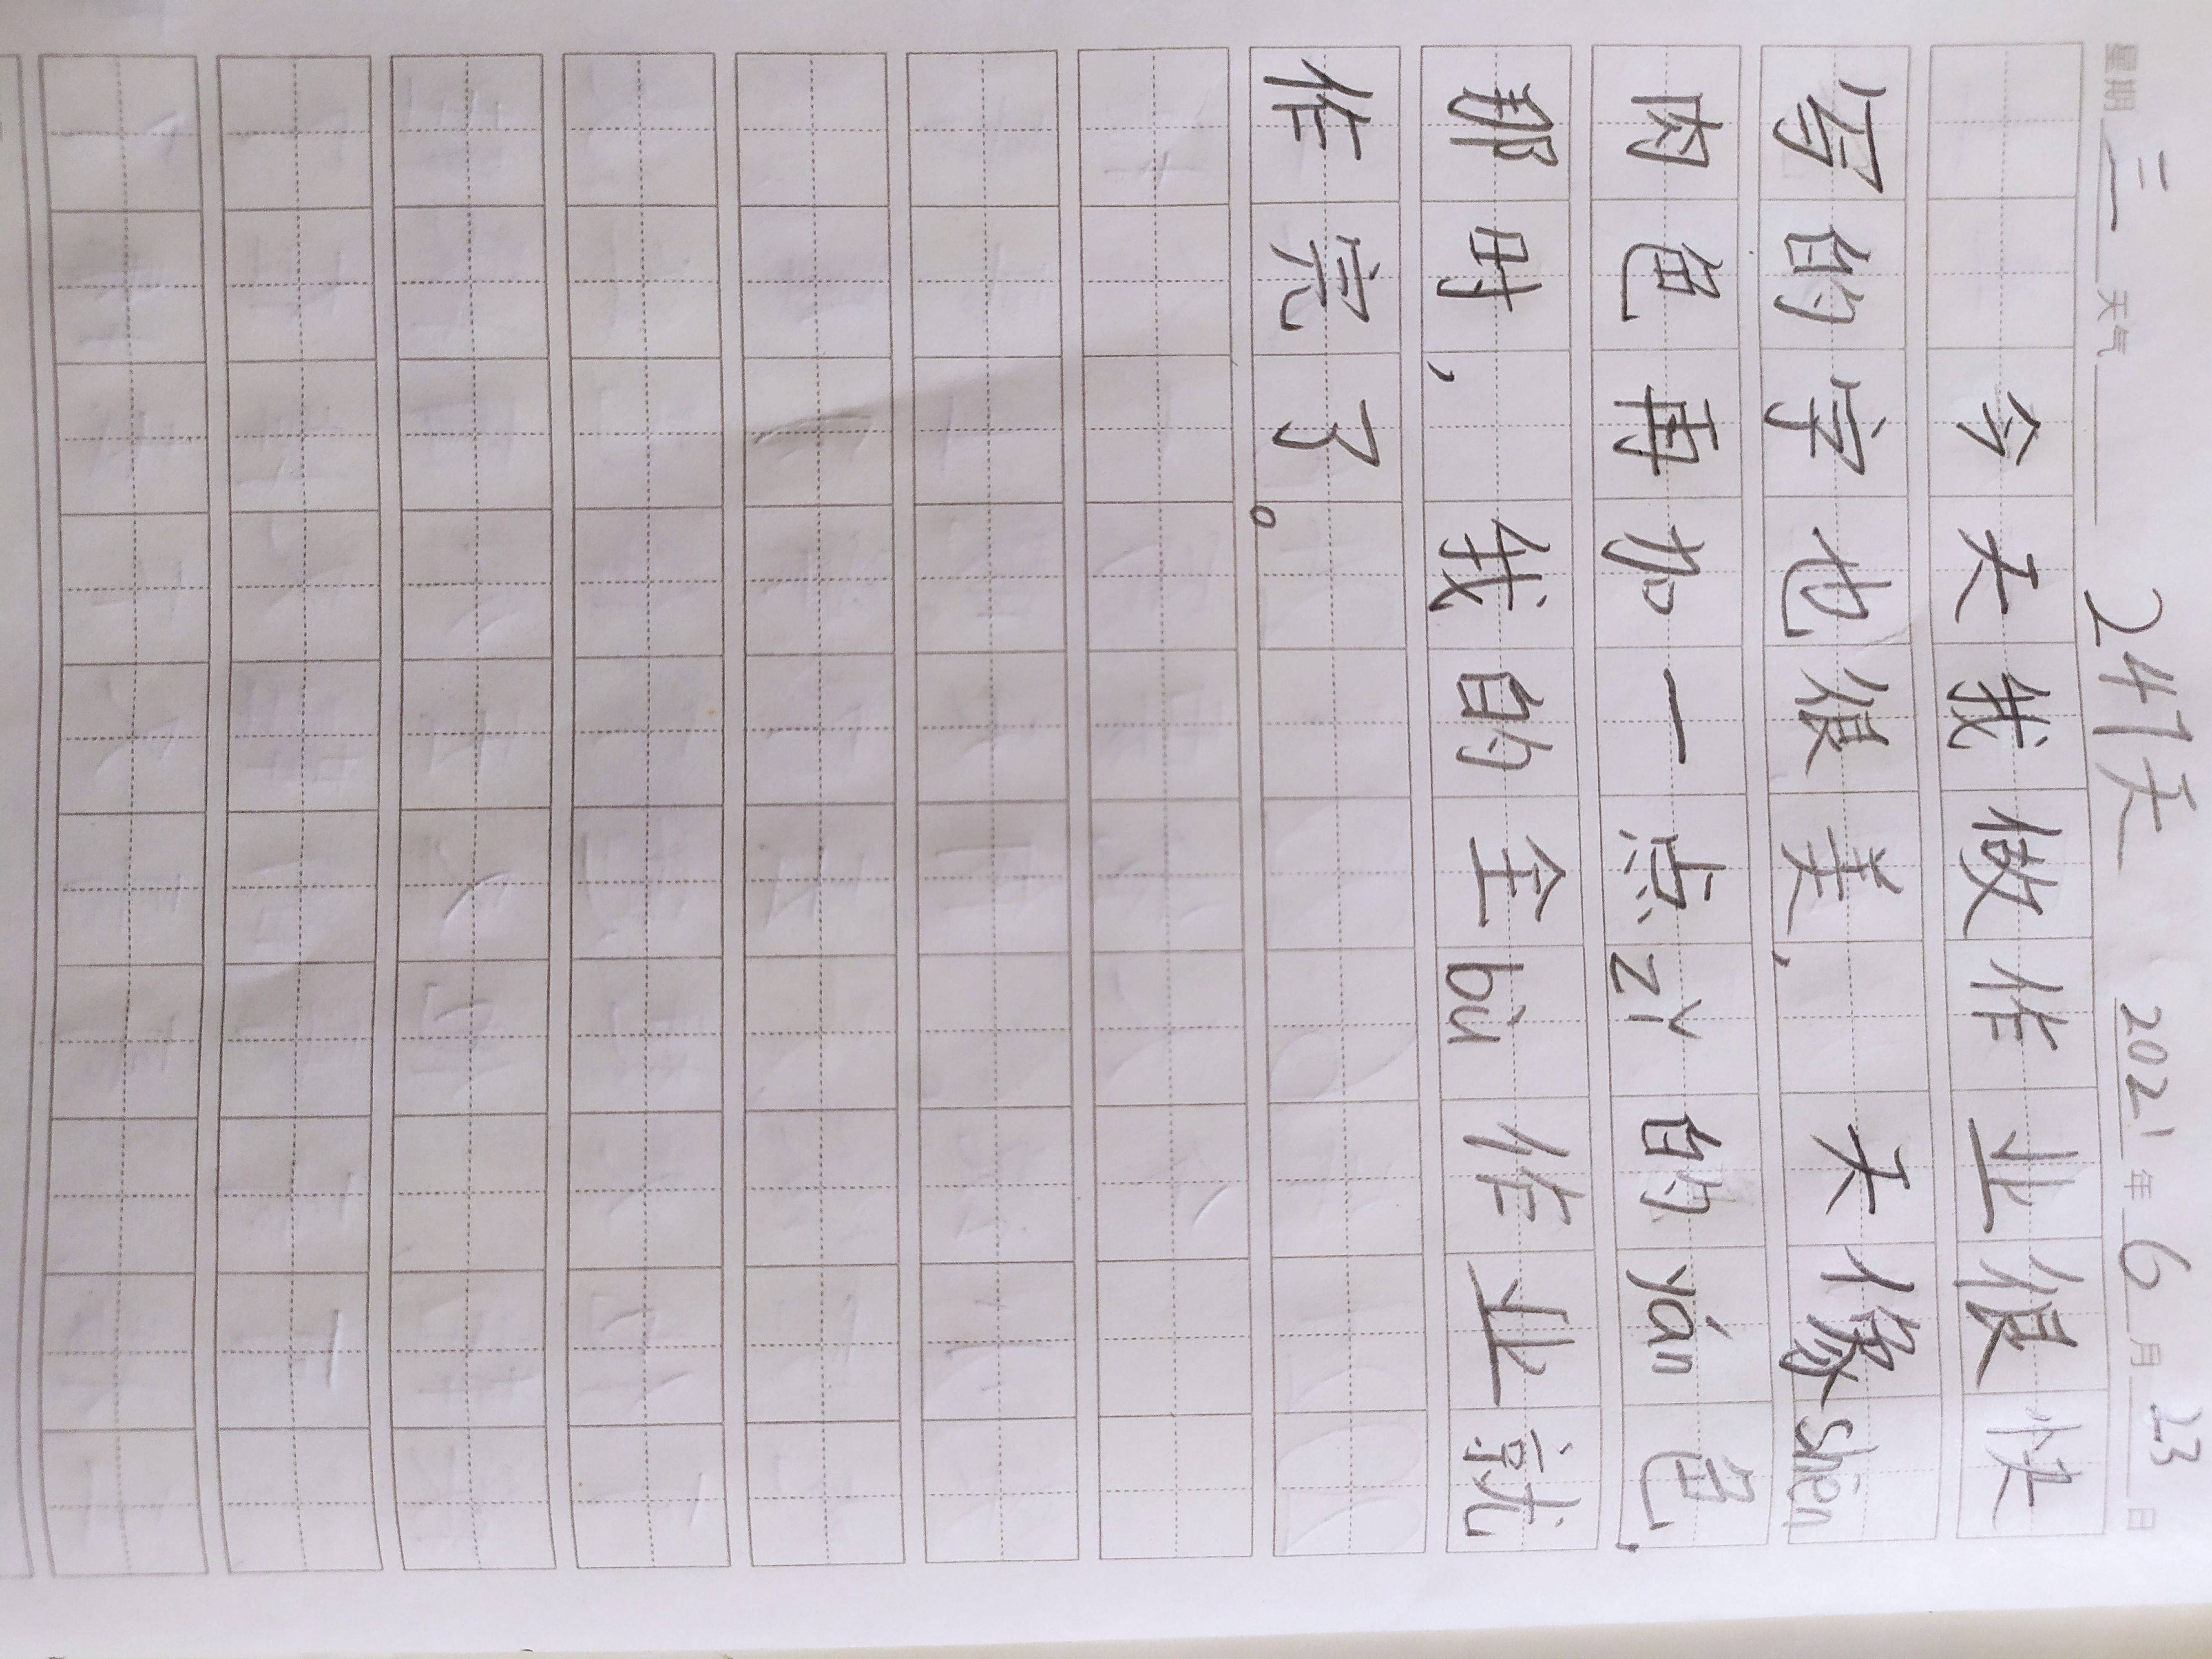 星期三 天气 241天 2021年6月23日
今天我做作业很快
写的字也很美,天像shēn
肉色再加一点zǐ的yán色,
那时,我的全bù作业就
作完了。